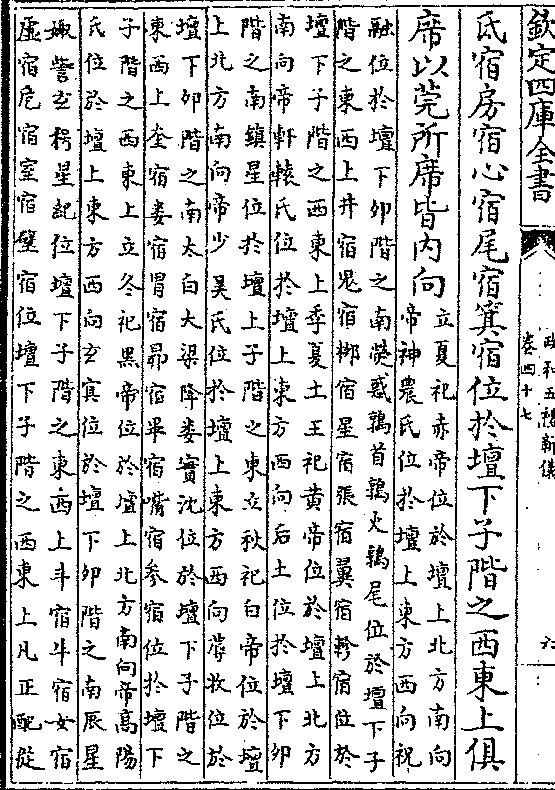 欽定四庫全書
政和五禮新儀
卷四十七
六
氐宿房宿心宿尾宿箕宿位扵壇下子階之西東上俱
席以莞所席皆内向
立夏祀赤帝位扵壇上北方南向
帝神農氏位扵壇上東方西向祝
融位扵壇下夘階之南熒惑鶉首鶉火鶉尾位扵壇下子
階之東西上井宿鬼宿栁宿星宿張宿翼宿軫宿位扵
壇下子階之西東上季夏土王祀黄帝位扵壇上北方
南向帝軒轅氏位扵壇上東方西向后土位扵壇下夘
階之南鎮星位扵壇上子階之東立秋祀白帝位扵壇
上北方南向帝少昊氏位扵壇上東方西向蓐收位扵
壇下夘階之南太白大梁降婁實沈位扵壇下子階之
東西上奎宿婁宿胃宿昴宿畢宿觜宿參宿位扵壇下
子階之西東上立冬祀黑帝位扵壇上北方南向帝高陽
氏位扵壇上東方西向玄冥位扵壇下夘階之南辰星
娵訾玄枵星紀位壇下子階之東西上斗宿牛宿女宿
虚宿危宿室宿壁宿位壇下子階之西東上凡正配從